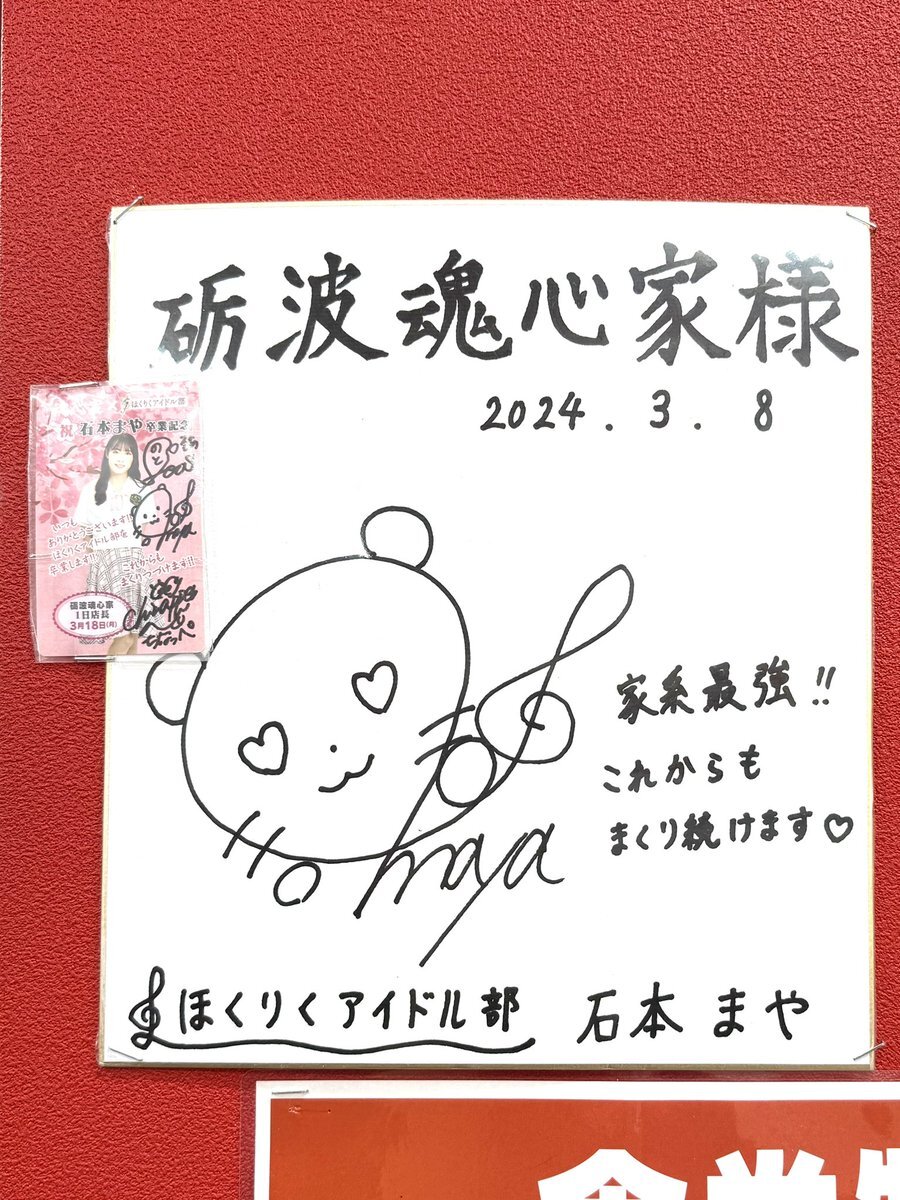 砺波魂心家様
2024.3.8
家系最強!!
これからも
まくり続けます♡
maya
ほくりくアイドル部 石本 まや
ほくりくアイドル部
祝 石本まや 卒業記念
いつも
ありがとうございます!!
ほくりくアイドル部を
卒業します!!
これからも
まくりつづけます!!
砺波魂心家
1日店長
3月18日(月)